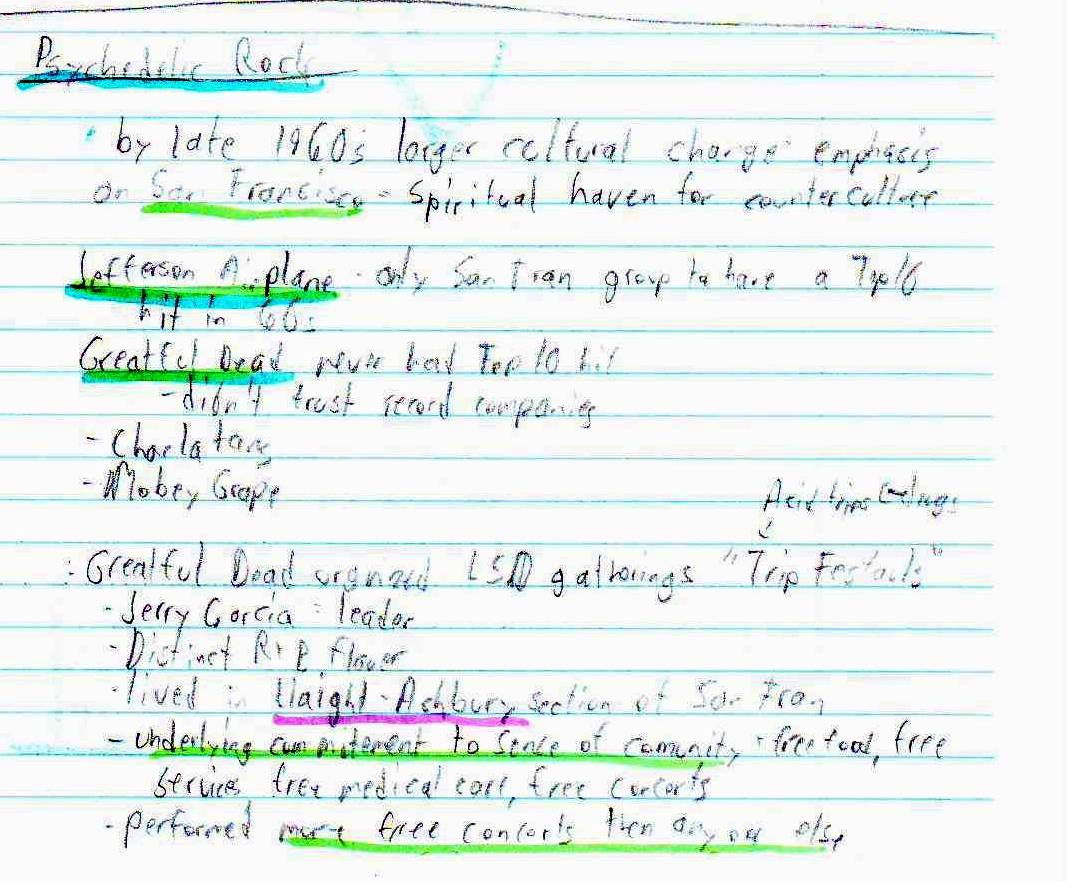 Psychedelic Rock
· by late 1960s larger celtural change emphasis
on San Francisco - Spiritual haven for counterculture
Jefferson Airplane - only San Fran group to have a Top 10
hit in 60s
Greatful Dead never had Top 10 hit
- didn't trust record companies
- Charlatans
- Mobey Grape
Acid trips
: Greatful Dead orgnized LSD gatherings "Trip Festavls"
- Jerry Garcia = leader
- Distinct R+B flavor
- lived in Haight-Ashbury section of San Fran
- underlying commitement to sence of comunity - free food, free
services free medical care, free concerts
- performed more free concerts then anyone else